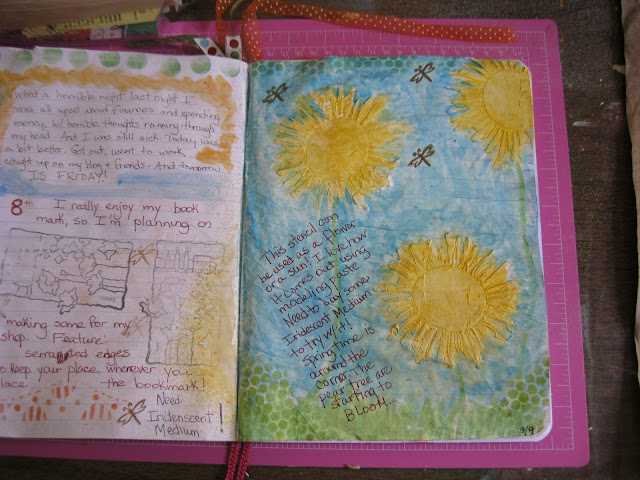 What a horrible night last night I
was all upset about finances and spending
money w/ horrible thoughts running through
my head. And I was still sick. Today was
a bit better. Got out, went to work,
caught up on my blog + friends. And tomorrow
IS FRIDAY!
8th I really enjoy my book
mark, so I'm planning on
making some for my
shop. Feature:
edges
to keep your place wherever you
place the bookmark!
Need
Iridenscent
Medium!
This stencil can
be used as a flower
or a sun! I love how
it comes out using
modeling paste
Need to buy some
Iridescent Medium
to try w/ it!
Spring time is
around the
corner. The
pear tree are
starting to
BLOOM...
3/9